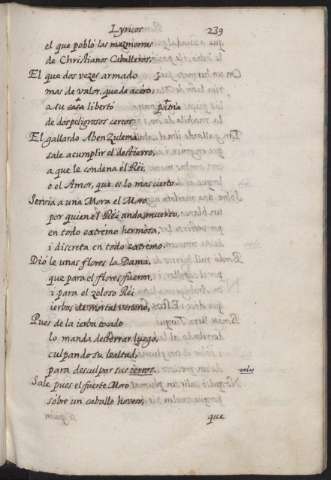 Lyricos 239
el que pobló las mazmorras
de Christianos Caballeros.
El que dos vezes armado
mas de valor, que de açero,
a su casa libertó patria
de dos peligrosos cercos.
El gallardo Aben Zulema
sale a cumplir el destierro,
a que le condena el Rei,
o el Amor, que es lo mas cierto.
Servia a una Mora el Moro
por quien el Rei anda muerto,
en todo extremo hermosa,
i discreta en todo extremo.
Dióle unas flores la Dama,
que para el flores fueron,
i para el zeloso Rei
ierbas de mortal veneno,
Pues de la ierba tocado
lo manda desterrar luego,
culpando su lealtad,
para desculpar sus ierros. zelos
Sale pues el fuerte Moro
sobre un caballo hovero,
que